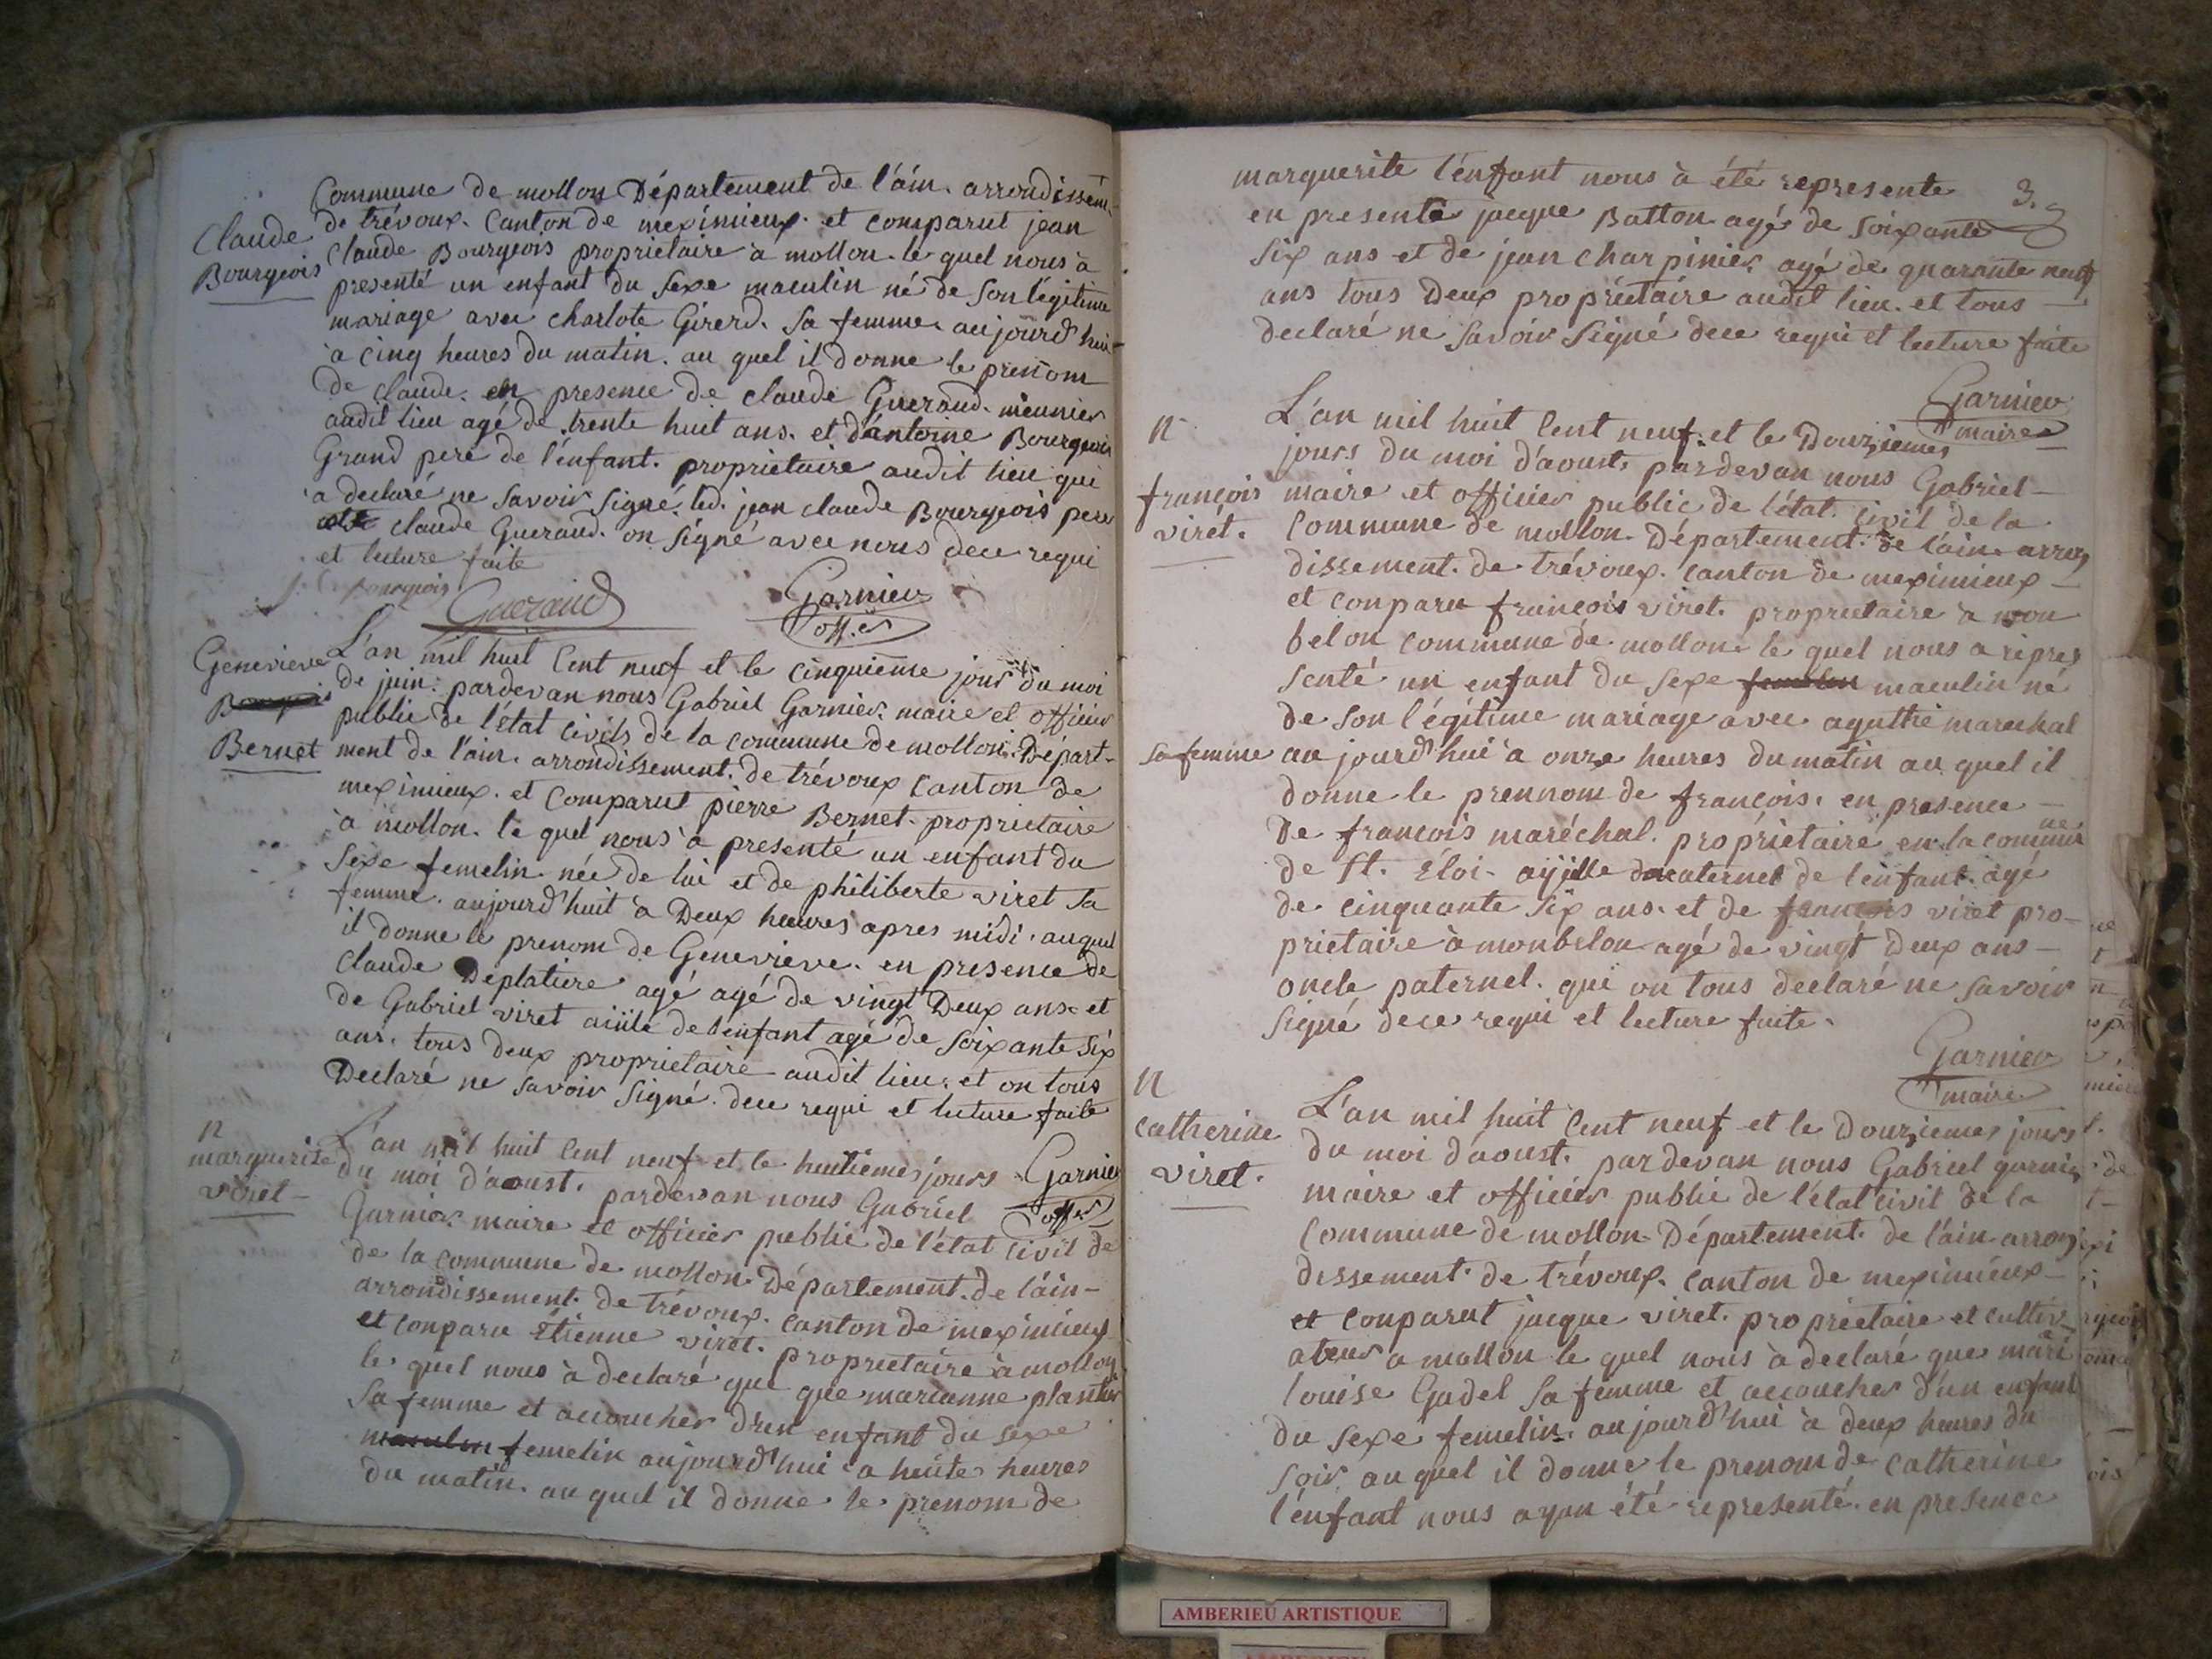 Commune de mollon Département de l'ain. arrondissem.
de trévoux. Canton de meximieux. et comparut jean
Claude
Bourgeois
Claude Bourgeois proprietaire a mollon. le quel nous à
presenté un enfant du sexe maculin né de son légitime
mariage avec charlote Girerd. sa femme. aujourd'hui
a cinq heures du matin. au quel il donne le prenom
de claude. en presence de claude Gueraud. meunier
audit lieu agé de trente huit ans. et d'antoine Bourgeois
Grand pere de l'enfant. proprietaire audit lieu qui
a declaré ne savoir signé. led. jean claude Bourgeois pere
claude Gueraud. on signé avec nous dece requi
et lecture faite
Bourgeois Gueraud Garnier
off.er
Genevieve
Bernet
L'an mil huit Cent neuf et le cinquieme jour du moi
de juin. pardevan nous Gabriel Garnier. maire et officier
public de l'état civils de la commune de mollon. Départ-
ment de l'ain. arrondissement. de trévoux canton de
meximieux. et comparut pierre Bernet. proprietaire
à mollon. le quel nous à presenté un enfant du
sexe femelin. née de lui et de philiberte viret sa
femme. aujourd'huit à Deux heures apres midi. auquel
il donne le prenom de Genevieve. en presence de
claude Deplatiere agé agé de vingt Deux ans. et
de Gabriel viret aiüle de l'enfant agé de soixante six
ans. tous deux proprietaire audit lieu. et on tous
Declaré ne savoir signé. dece requi et lecture faite
Garnier
off.er
n
marguerite
viret
L'an mil huit Cent neuf et le huitiemes jours
du moi d'aoust. pardevan nous Gabriel
Garnier maire et officier public de l'état civil de
de la commune de mollon Département. de l'ain-
arrondissement. de trévoux. canton de meximieux
et conparu étienne viret. proprietaire à mollon
le quel nous à declaré que que marianne plantier
sa femme et accoucher d'un enfant du sexe
masculin femelin aujourd'hui a huite heures
du matin. au quel il donne le prenom de
3.
marguerite l'enfant nous à été represente
en presente jacque Batton agé de soixante
six ans et de jean charpinier agé de quarante neuf
ans tous Deux propriétaire audit lieu. et tous
declaré ne savoir signé dece requi et lecture faite
Garnier
maire
n
françois
virét.
L'an mil huit Cent neuf. et le Douziemes
jours du moi d'aoust. pardevan nous Gabriel
maire et officier public de l'état civil de la
commune de mollon. Département. de l'ain. arron
dissement. de trévoux. canton de meximieux
et conparu françois viret. proprietaire à mon
belon commune de mollon. le quel nous a repres
senté un enfant du sexe femelin maculin né
de son légitime mariage avec aguttre marechal
sa femme au jourd'hui à onze heures du matin au quel il
donne le prennom de françois. en presence
De françois maréchal. propriétaire en la commune
de St. Éloi. ayülle maternel de l'enfant. agé
de cinquante six ans. et de françois viret pro-
prietaire à monbelon agé de vingt Deux ans
oncle paternel. qui on tous declaré ne savoir
signé dece requi et lecture faite.
Garnier
maire
n
catherine
viret.
L'an mil huit Cent neuf et le Douziemes jours
du moi d'aoust. pardevan nous Gabriel garnier
maire et officier public de l'état civil de la
commune de mollon. Département. de l'ain arron
dissement. de trévoux. canton de meximieux
et conparut jacque viret. proprietaire et cultiv
ateur a mollon le quel nous à declaré que mari
louise Gadel sa femme et accoucher d'un enfant
du sexe femelin. aujourd'hui à deux heures du
soir au quel il donne le prenom de catherine
l'enfant nous ayan été representé. en presence
AMBERIEU ARTISTIQUE